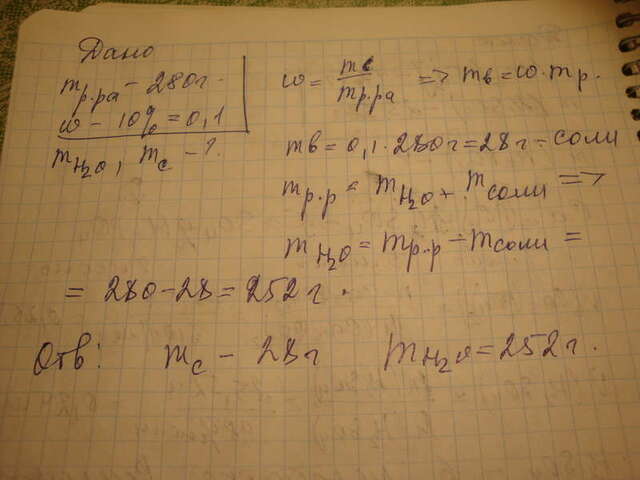 Дано
mр.ра - 280г.
w - 10% = 0,1
mH2O, mc - ?
w = mв/mр.ра => mв = w·mр.
mв = 0,1·280г = 28г - соли
mр.р = mH2O + mсоли =>
mH2O = mр.р - mсоли =
= 280 - 28 = 252г.
Отв: mc - 28г mH2O = 252г.